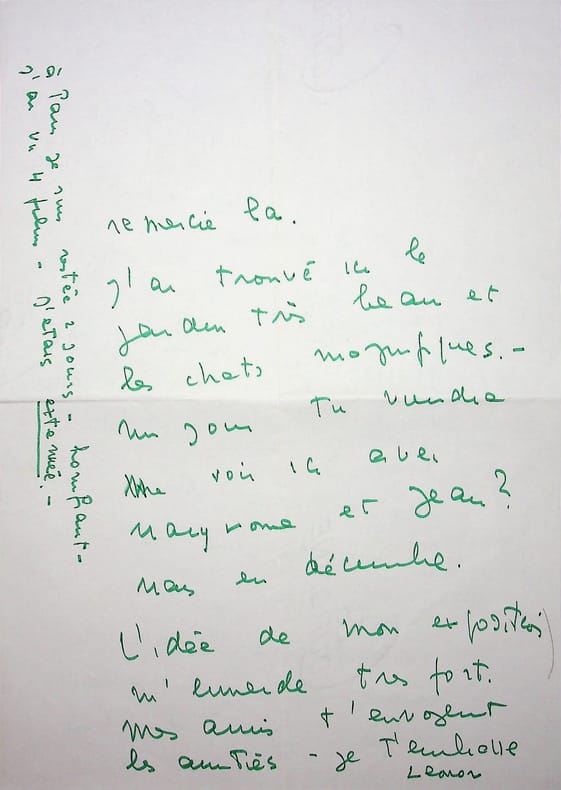 remercie la.
J'ai trouvé ici le
jardin très beau et
les chats magnifiques.-
un jour tu viendra
me voir ici avec
et Jean?
Mais en décembre.
L'idée de mon exposition
m'emmerde tres fort.
mes amis t'envoyent
les amitiés - je t'embrasse
Leonor
à Paris je suis restée 2 jours - horrifiant -
j'ai vu 4 films - J'etais extenuée.-